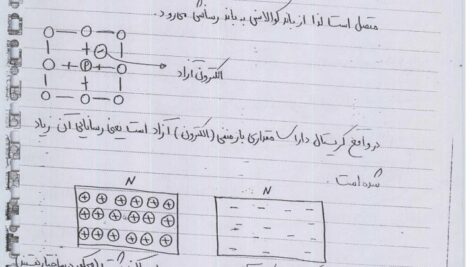 متصل است لذا از باند کوالانسی به باند رسانشی می‌رود.
الکترون آزاد
P
در واقع کریستال دارای مقداری بار منفی (الکترون) آزاد است یعنی رسانایی آن زیاد
شده است.
N N